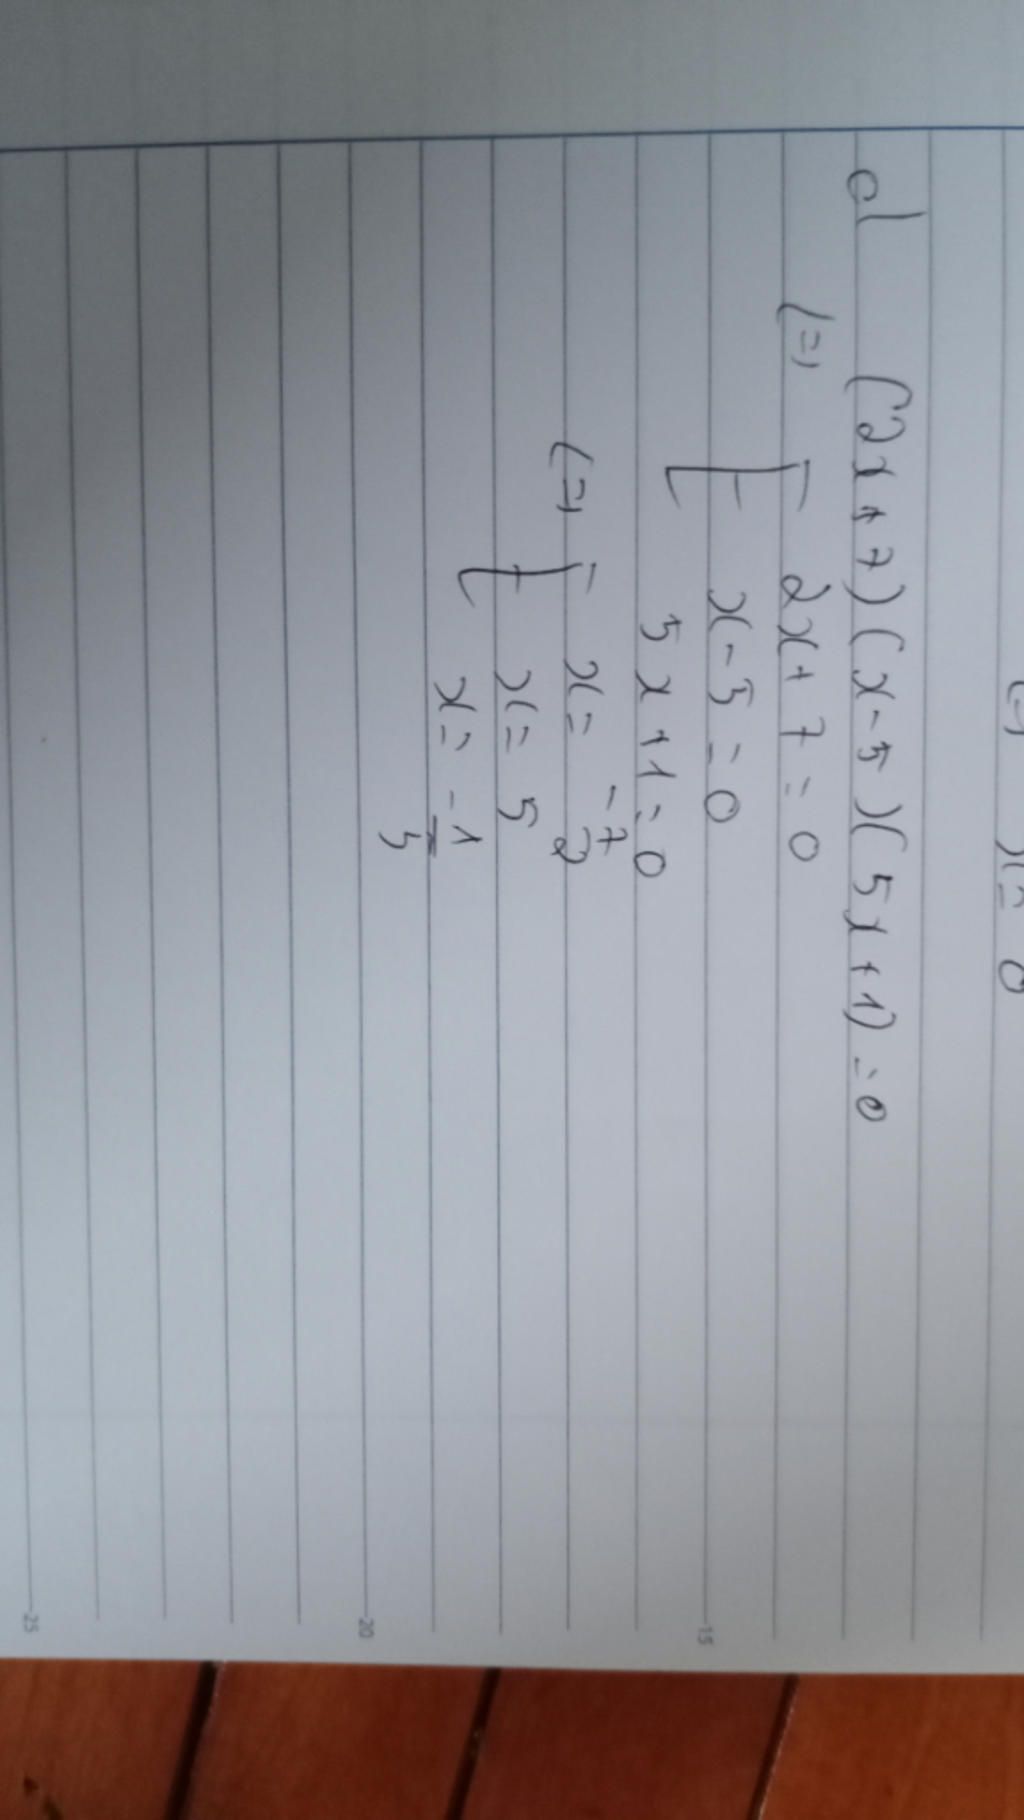 d) (2x+7)(x-5)(5x+1)=0
(=) [ 2x+7=0
x-5=0
5x+1=0
(=) [ x= -7/2
x= 5
x= -1/5
15
20
25